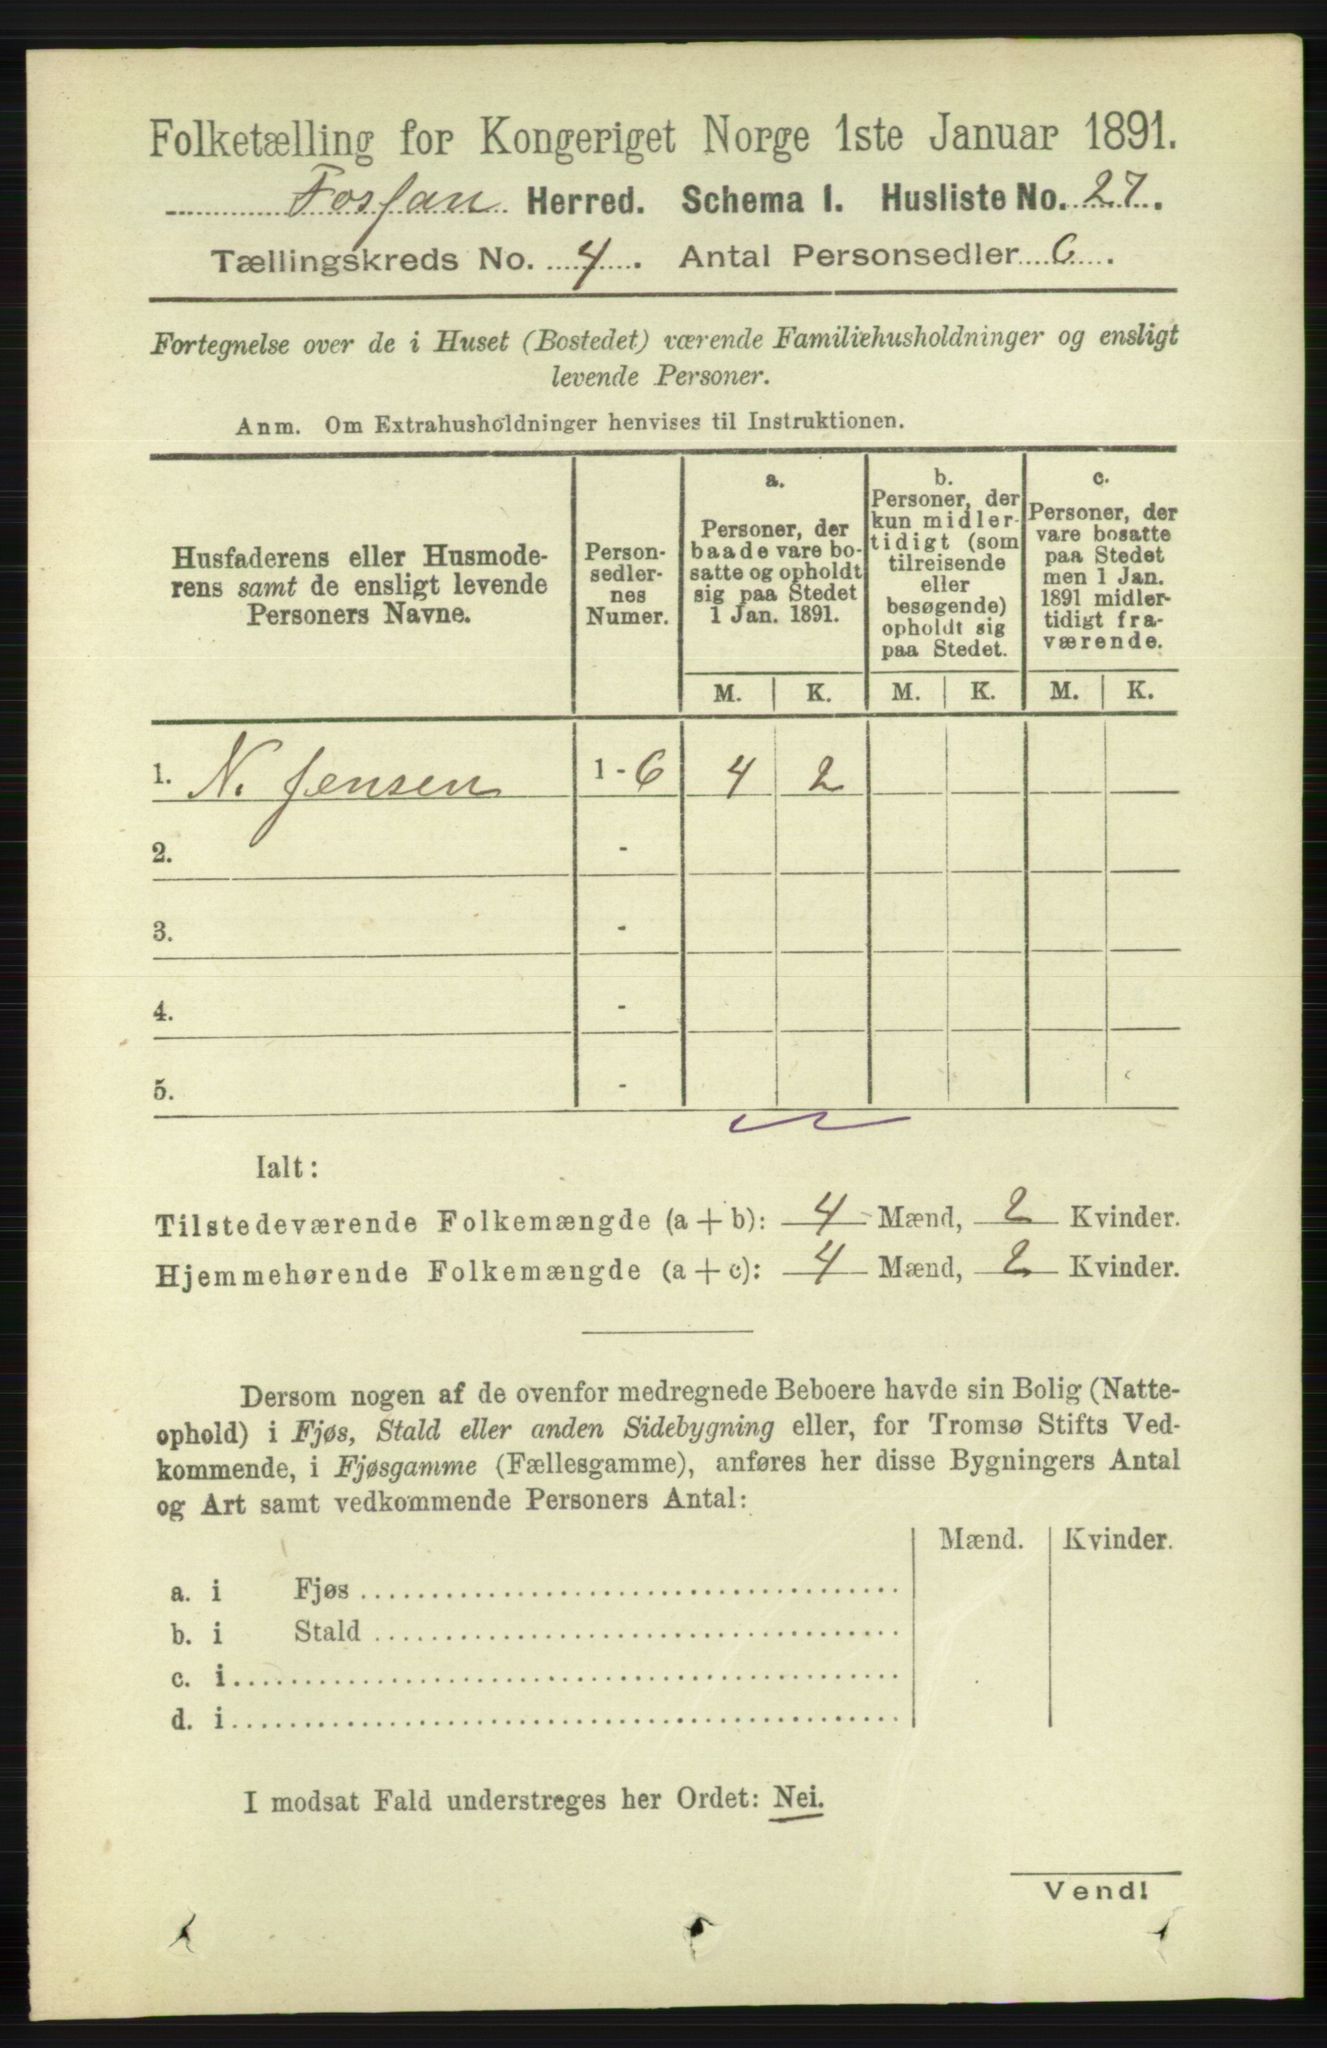 Folketælling for Kongeriget Norge 1ste Januar 1891.
Fossan Herred. Schema I. Husliste No. 27.
Tællingskreds No. 4. Antal Personsedler 6.
Fortegnelse over de i Huset (Bostedet) værende Familiehusholdninger og ensligt
levende Personer.
Anm. Om Extrahusholdninger henvises til Instruktionen.
Husfaderens eller Husmode-
rens samt de ensligt levende
Personers Navne.
Person-
sedler-
nes
Numer.
a.
Personer, der
baade vare bo-
satte og opholdt
sig paa Stedet
1 Jan. 1891.
b.
Personer, der
kun midler-
tidigt (som
tilreisende
eller
besøgende)
opholdt sig
paa Stedet.
c.
Personer, der
vare bosatte
paa Stedet
men 1 Jan.
1891 midler-
tidigt fra-
værende.
M. K. M. K. M. K.
1. N. Jensen 1 - 6 4 2
2. -
3. -
4. -
5. -
Ialt:
Tilstedeværende Folkemængde (a + b): 4 Mænd, 2 Kvinder.
Hjemmehørende Folkemængde (a + c): 4 Mænd, 2 Kvinder.
Dersom nogen af de ovenfor medregnede Beboere havde sin Bolig (Natte-
ophold) i Fjøs, Stald eller anden Sidebygning eller, for Tromsø Stifts Ved-
kommende, i Fjøsgamme (Fællesgamme), anføres her disse Bygningers Antal
og Art samt vedkommende Personers Antal:
Mænd. Kvinder.
a. i Fjøs
b. i Stald
c. i
d. i
I modsat Fald understreges her Ordet: Nei.
Vend!